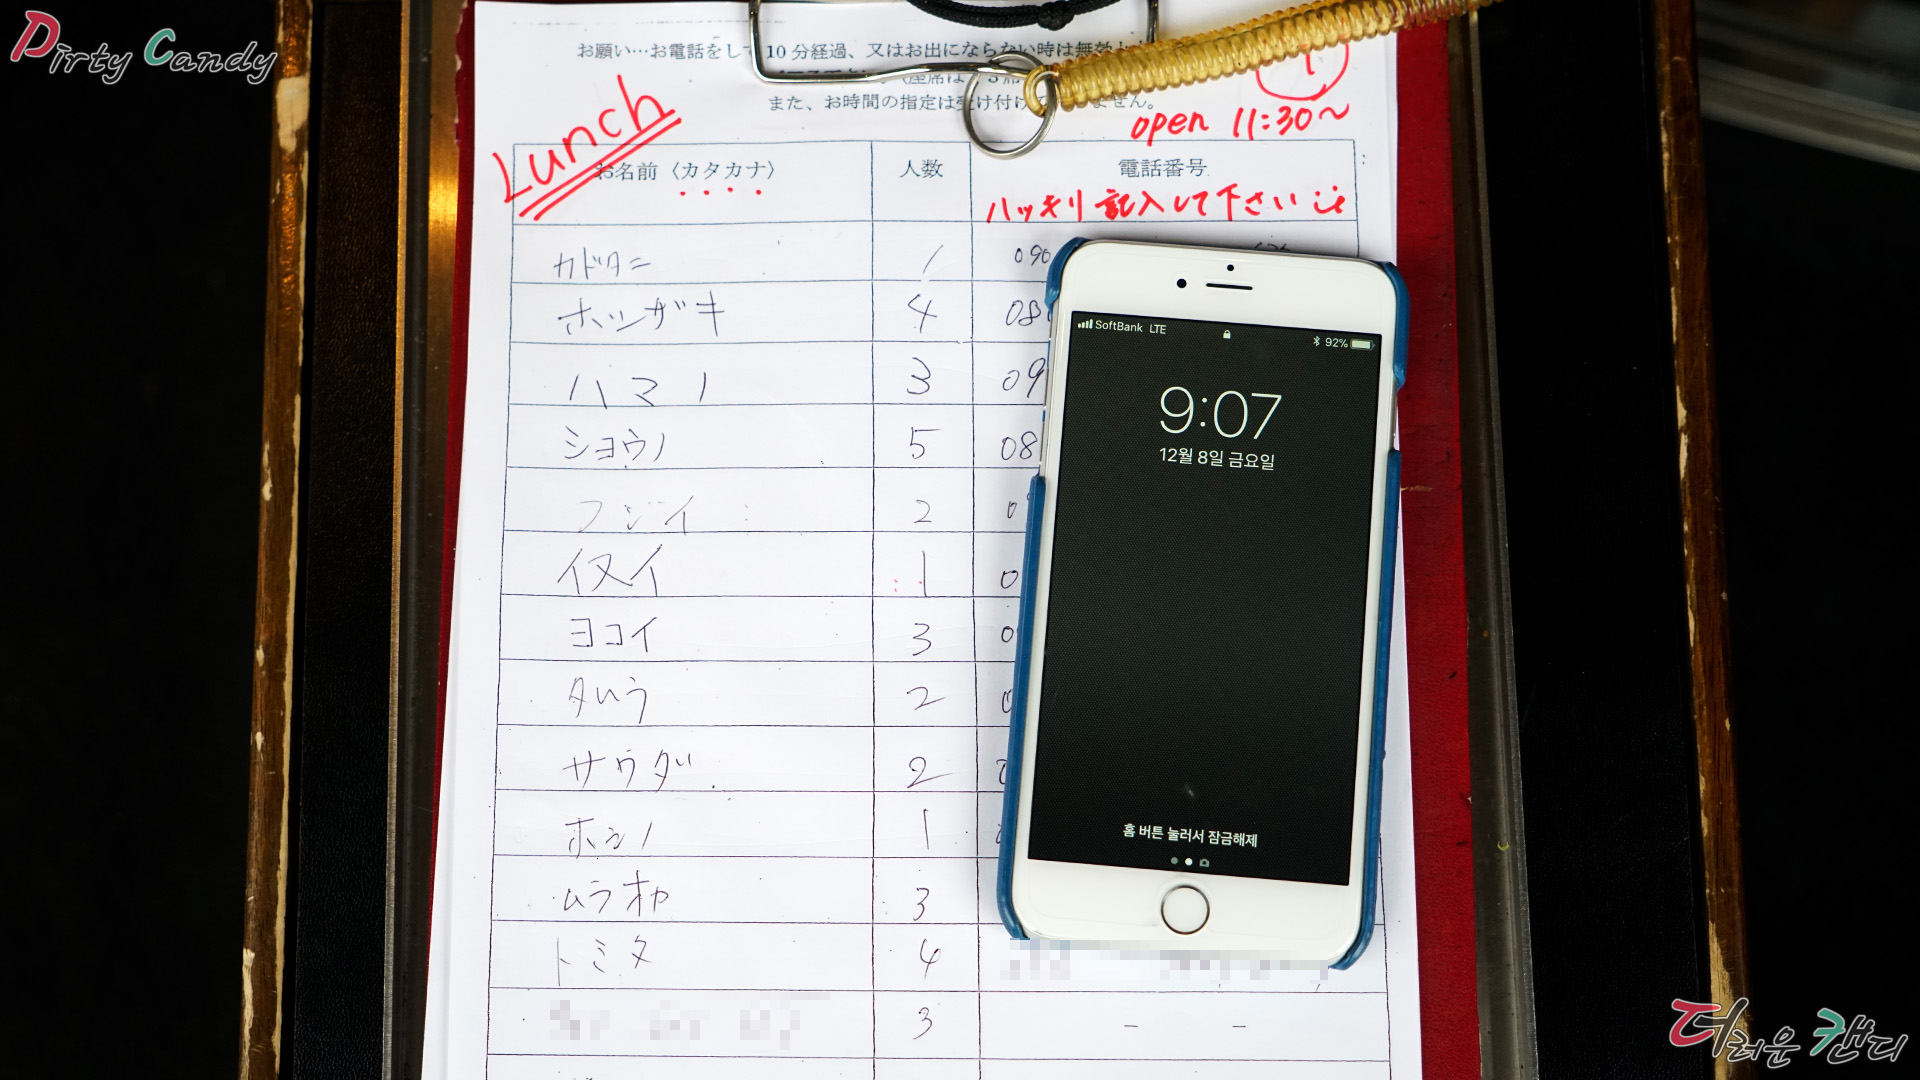 Dirty Candy
お願い…お電話をし 10分経過、又はお出にならない時は無効
座席は
また、お時間の指定は受け付け ません。
1
open 11:30~
Lunch
お名前〈カタカナ〉 人数 電話番号
ハッキリ記入して下さい
カドタニ 1 090
ホソザキ 4 08
ハマノ 3 09
ショウノ 5 08
フジイ 2 0
イヌイ 1 0
ヨコイ 3 0
タムラ 2 0
サワダ 2
ホシノ 1
ムラオカ 3
トミタ 4
3 - -
SoftBank LTE 92%
9:07
12월 8일 금요일
홈 버튼 눌러서 잠금해제
더러운 캔디